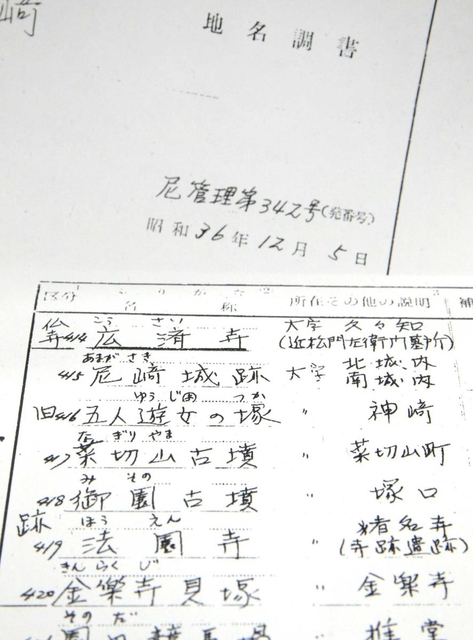 崎
地名調書
尼管理第342号(発番号)
昭和36年12月5日
区分 名称 所在その他の説明 補
こうさい
仏寺 414 広済寺 大字 久々知 (近松門左衛門墓所)
あまがさき
415 尼崎城跡 大字 北城内 南城内
ゆうじょ つか
旧 416 五人遊女の塚 〃 神崎
なぎりやま
417 菜切山古墳 〃 菜切山町
みその
418 御園古墳 〃 塚口
跡 ほうえん
419 法園寺 〃 猪名寺 (寺跡遺跡)
きんらくじ
420 金楽寺貝塚 〃 金楽寺
そのだ
園田競馬場